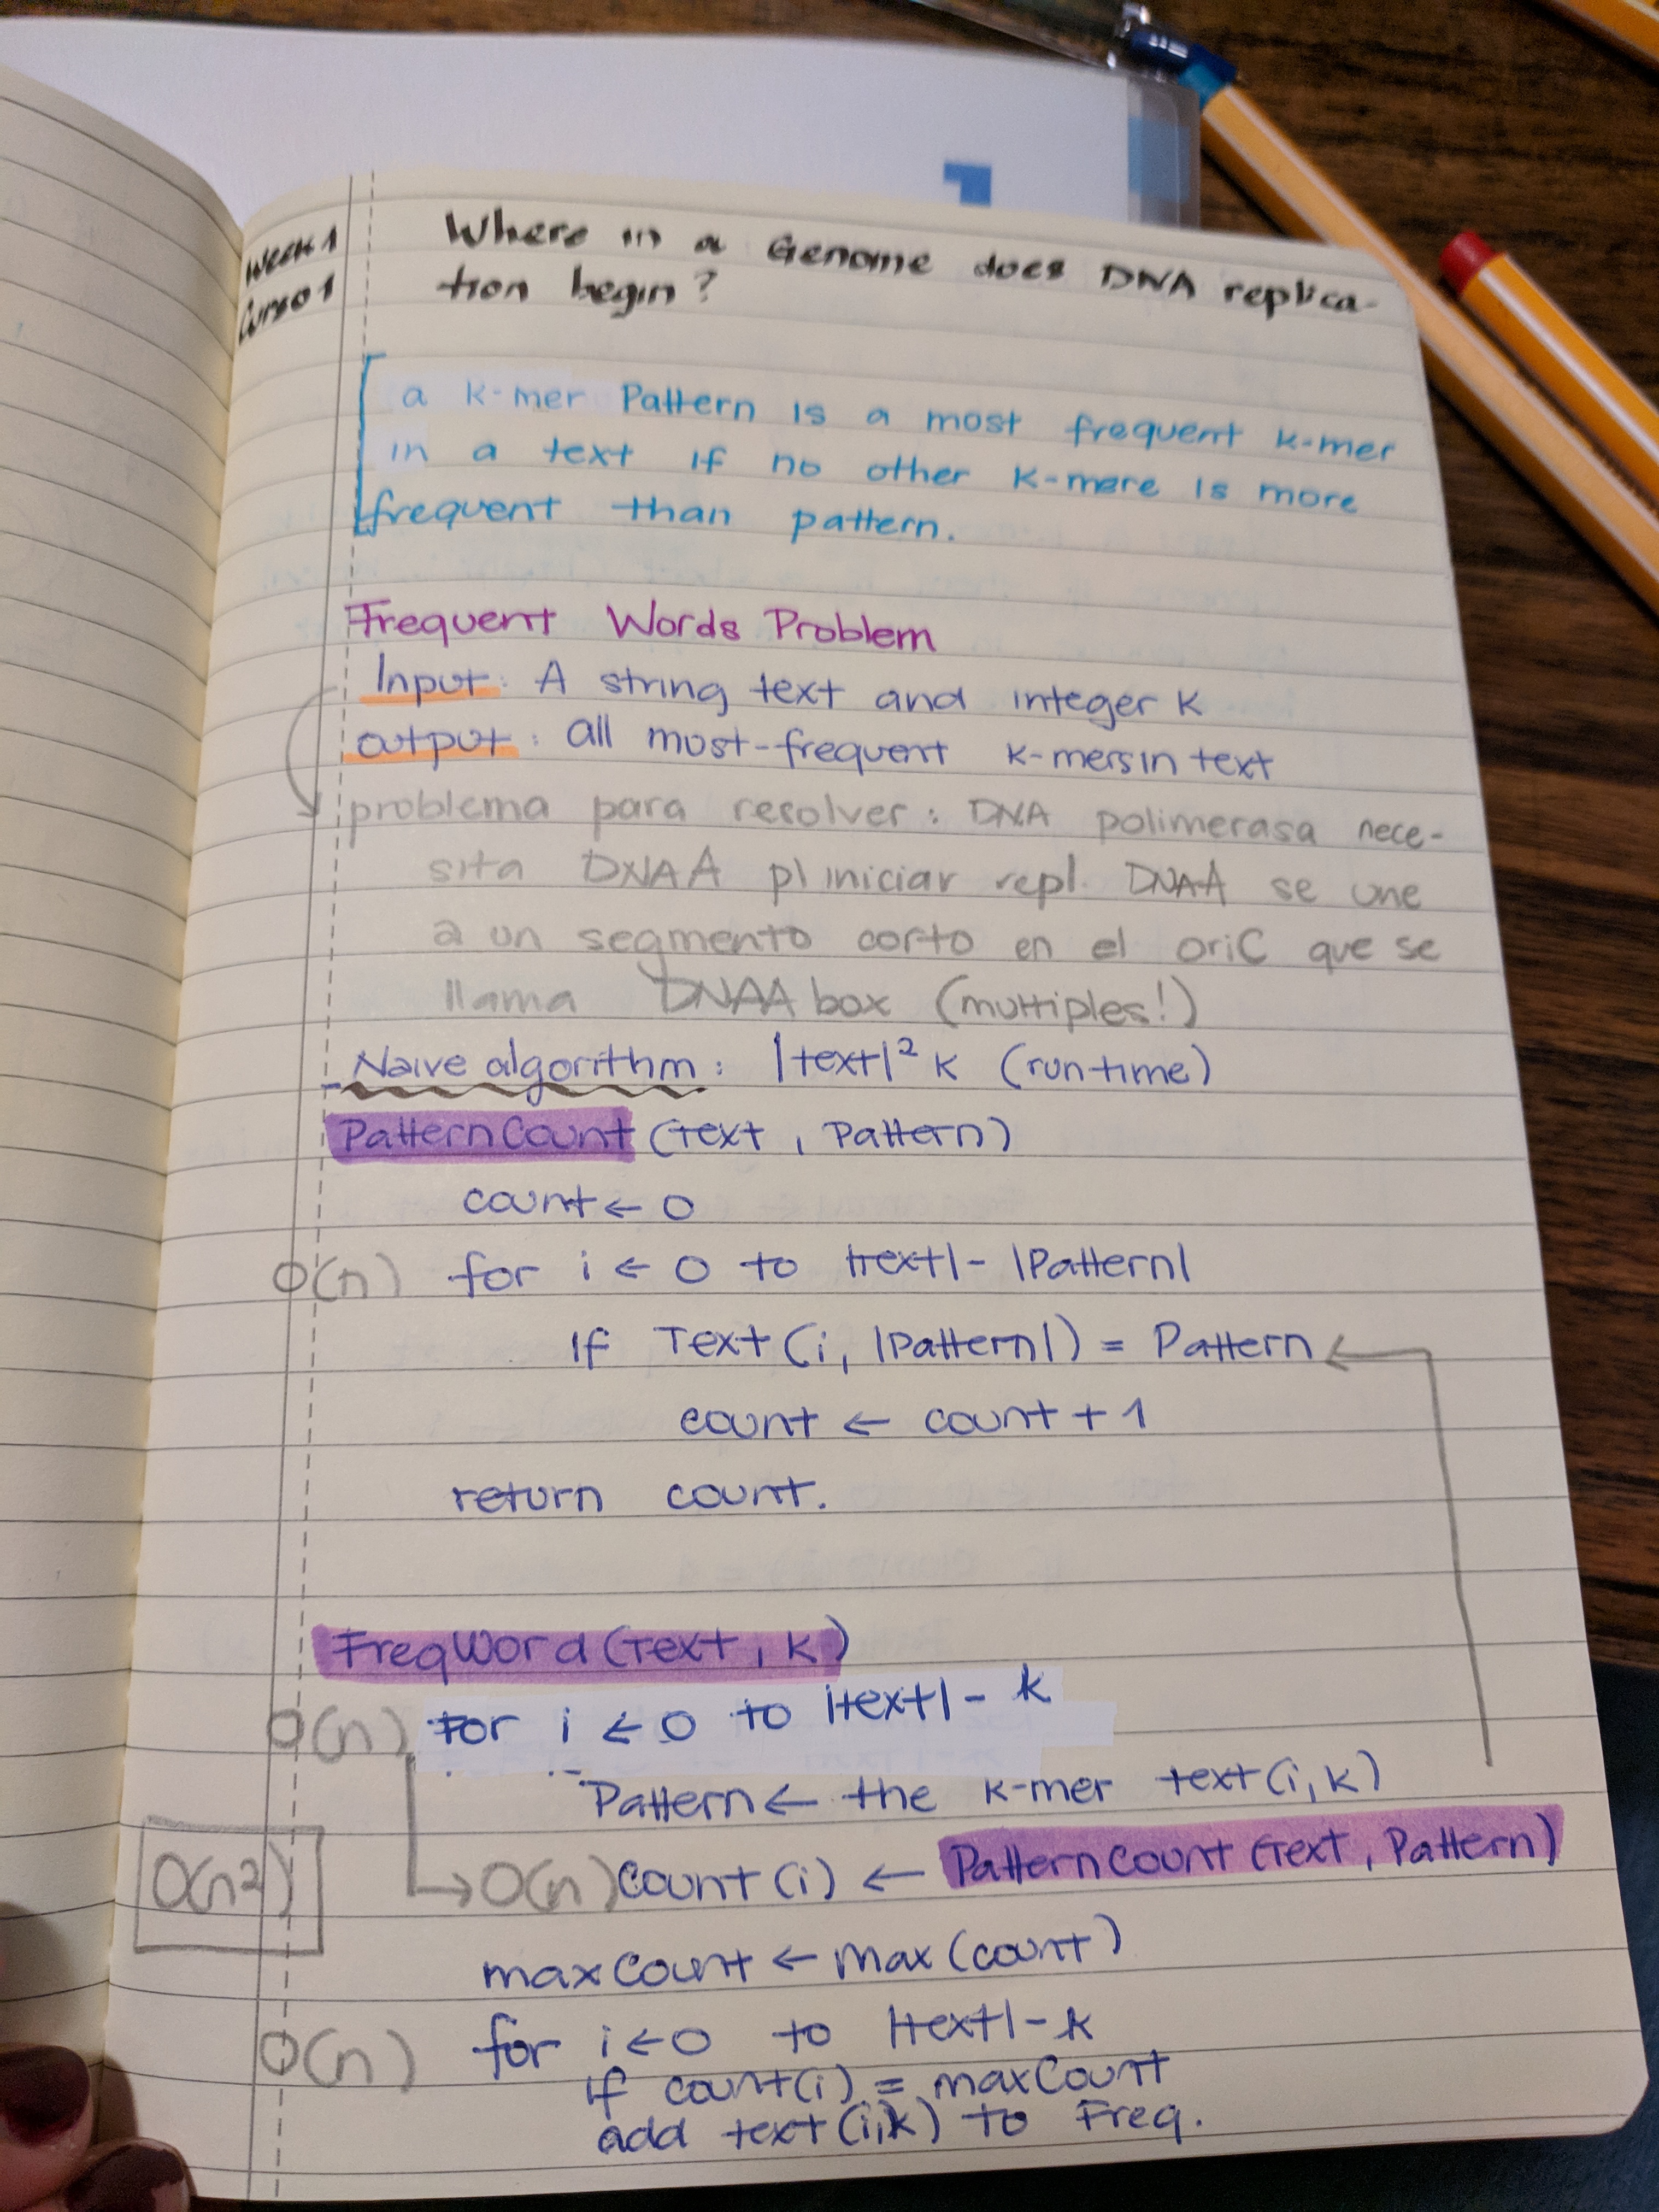 Week 1
Curso 1
Where in a Genome does DNA replica-
tion begin?
a k-mer Pattern is a most frequent k-mer
in a text if no other k-mere is more
frequent than pattern.
Frequent Words Problem
Input: A string text and integer k
output: all most-frequent k-mers in text
problema para resolver: DNA polimerasa nece-
sita DNAA p/ iniciar repl. DNAA se une
a un segmento corto en el oriC que se
llama DNAA box (multiples!)
Naive algorithm: |text|² k (runtime)
PatternCount (Text, Pattern)
count ← 0
O(n) for i ← 0 to |text| - |Pattern|
If Text (i, |Pattern|) = Pattern ←
count ← count + 1
return count.
FreqWord (Text, k)
O(n) For i ← 0 to |text| - k
Pattern ← the k-mer text (i, k)
O(n2) → O(n) count (i) ← PatternCount (Text, Pattern)
maxCount ← max (count)
O(n) for i ← 0 to |text| - k
if count(i) = maxCount
add text (i,k) to Freq.